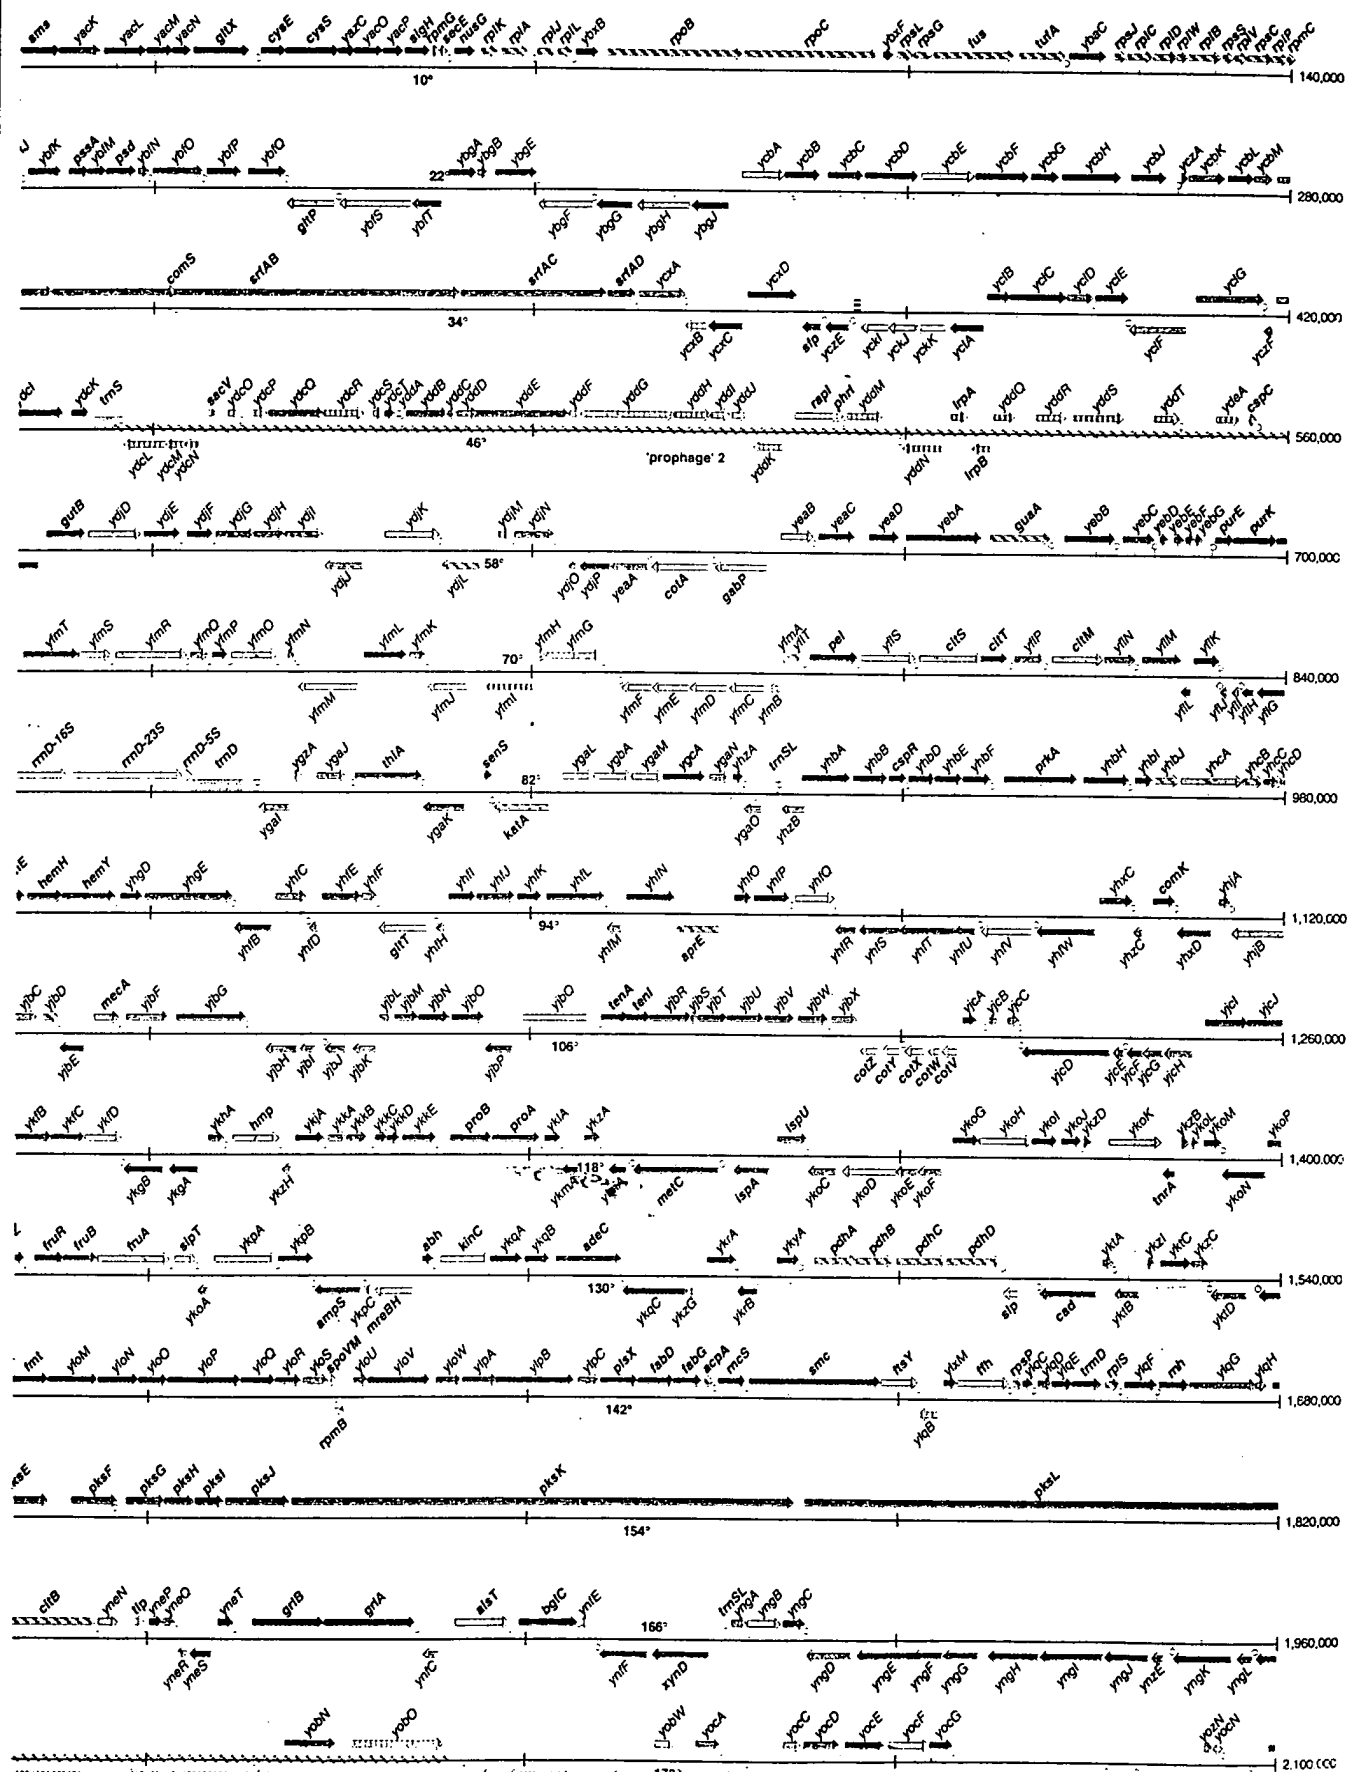 sms yacK yacL yacM yacN gltX cysE cysS yazC yacO yacP sigH rpmG secE nusG rplK rplA rplJ rplL ybxB rpoB rpoC ybxF rpsL rpsG fus tufA ybaC rpsJ rplC rplD rplW rplB rpsS rplV rpsC rplP rpmC
10° 140,000
ybfK pssA ybfM psd ybfN ybfO ybfP ybfQ ybgA ybgB ybgE ycbA ycbB ycbC ycbD ycbE ycbF ycbG ycbH ycbJ yczA ycbK ycbL ycbM
22 280,000
gltP ybfS ybfT ybgF ybgG ybgH ybgJ
comS srfAB srfAC srfAD ycxA ycxD yclB yclC yclD yclE yclG
34° 420,000
ycxB ycxC sfp yczE yckI yckJ yckK yclA yclF yczF
ydcI ydcK trnS sacV ydcO ydcP ydcQ ydcR ydcS ydcT yddA yddB yddC yddD yddE yddF yddG yddH yddI yddJ rapI phrI yddM lrpA yddQ yddR yddS yddT ydeA cspC
46° 560,000
ydcL ydcM ydcN 'prophage' 2 yddK yddN lrpB
gutB ydjD ydjE ydjF ydjG ydjH ydjI ydjK ydjM ydjN yeaB yeaC yeaD yebA guaA yebB yebC yebD yebE yebF yebG purE purK
58° 700,000
ydjJ ydjL ydjO ydjP yeaA cotA gabP
yfmT yfmS yfmR yfmQ yfmP yfmO yfmN yfmL yfmK yfmH yfmG yfmA yflT pel yflS citS citT yflP citM yflN yflM yflK
70° 840,000
yfmM yfmJ yfmI yfmF yfmE yfmD yfmC yfmB yflL yflJ yflI yflH yflG
rrnD-16S rrnD-23S rrnD-5S trnD ygzA ygaJ thiA senS ygaL ygbA ygaM ygcA ygaN yhzA trnSL yhbA yhbB cspR yhbD yhbE yhbF prkA yhbH yhbI yhbJ yhcA yhcB yhcC yhcD
82° 980,000
ygaI ygaK katA ygaO yhzB
hemH hemY yhgD yhgE yhfC yhfE yhfF yhfI yhfJ yhfK yhfL yhfN yhfO yhfP yhfQ yhxC comK yhjA
94° 1,120,000
yhfB yhfD gltT yhfH yhfM aprE yhfR yhfS yhfT yhfU yhfV yhfW yhzC yhxD yhjB
yjbC yjbD mecA yjbF yjbG yjbL yjbM yjbN yjbO yjbQ tenA tenI yjbR yjbS yjbT yjbU yjbV yjbW yjbX yjcA yjcB yjcC yjcI yjcJ
106° 1,260,000
yjbE yjbH yjbI yjbJ yjbK yjbP cotZ cotY cotX cotW cotV yjcD yjcE yjcF yjcG yjcH
ykfB ykfC ykfD ykhA hmp ykjA ykkA ykkB ykkC ykkD ykkE proB proA yklA ykzA ispU ykoG ykoH ykoI ykoJ ykzD ykoK ykzB ykoL ykoM ykoP
118° 1,400,000
ykgB ykgA ykzH ykmA metC ispA ykoC ykoD ykoE ykoF tnrA ykoN
fruR fruB fruA sipT ykpA ykpB abh kinC ykqA ykqB adeC ykrA ykyA pdhA pdhB pdhC pdhD yktA ykzI yktC ykzC
130° 1,540,000
ykoA ampS ykpC mreBH ykqC ykzG ykrB slp cad yktB yktD
fmt yloM yloN yloO yloP yloQ yloR yloS spoVM yloU yloV yloW ylpA ylpB ylpC plsX fabD fabG acpA rncS smc ftsY ylxM ffh rpsP ylqC ylqD ylqE trmD rplS ylqF rnh ylqG ylqH
142° 1,680,000
rpmB ylqB
pksE pksF pksG pksH pksI pksJ pksK pksL
154° 1,820,000
citB yneN tlp yneP yneQ yneT grlB grlA alsT bglC ynfE trnSL yngA yngB yngC
166° 1,960,000
yneR yneS ynfC ynfF xynD yngD yngE yngF yngG yngH yngI yngJ ynzE yngK yngL
yobN yobO yobW yocA yocC yocD yocE yocF yocG yozN yocN